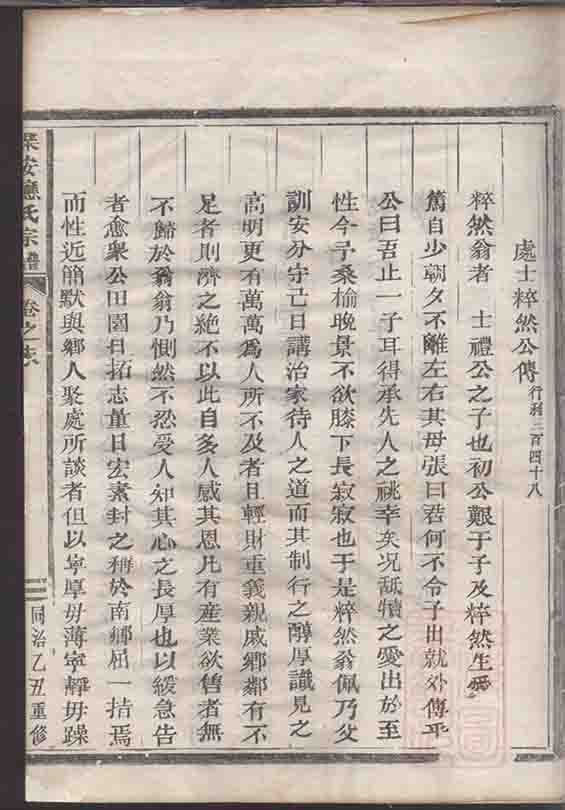 處士粹然公傳 行利三百四十八
粹然翁者 士禮公之子也初公艱于子及粹然生愛
篤自少朝夕不離左右其母張曰君何不令子出就外傳乎
公曰吾止一子耳得承先人之祧幸矣况舐犢之愛出於至
性今予桑榆晚景不欲膝下長寂寂也于是粹然翁佩乃父
訓安分守己日講治家待人之道而其制行之醇厚識見之
高明更有萬萬爲人所不及者且輕財重義親戚鄉鄰有不
足者則濟之絶不以此自多人感其恩凡有産業欲售者無
不歸於翁翁乃惻然不忍受人知其心之長厚也以緩急告
者愈衆公田園日拓志量日宏素封之稱於南鄉屈一指焉
而性近簡默與鄉人聚處所談者但以寧厚毋薄寧靜毋躁
安應氏宗譜
卷之
同治乙丑重修